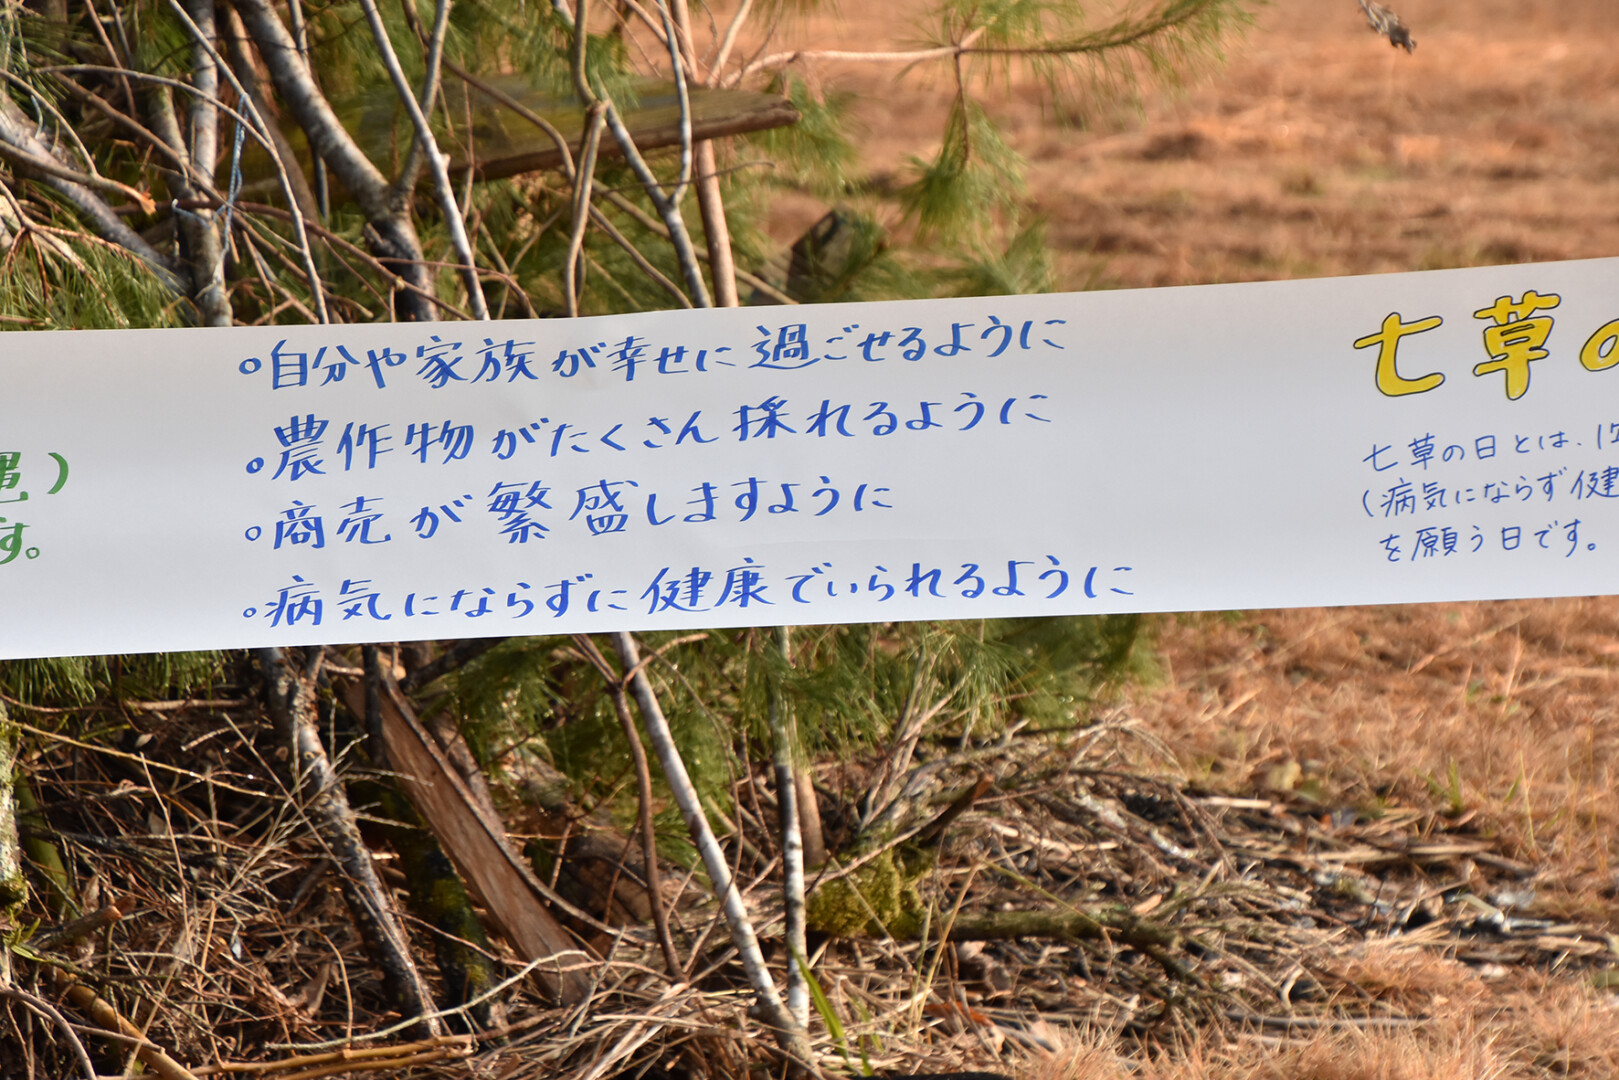 縄)
す。
。自分や家族が幸せに過ごせるように
。農作物がたくさん採れるように
。商売が繁盛しますように
。病気にならずに健康でいられるように
七草の
七草の日とは、1年
(病気にならず健
を願う日です。